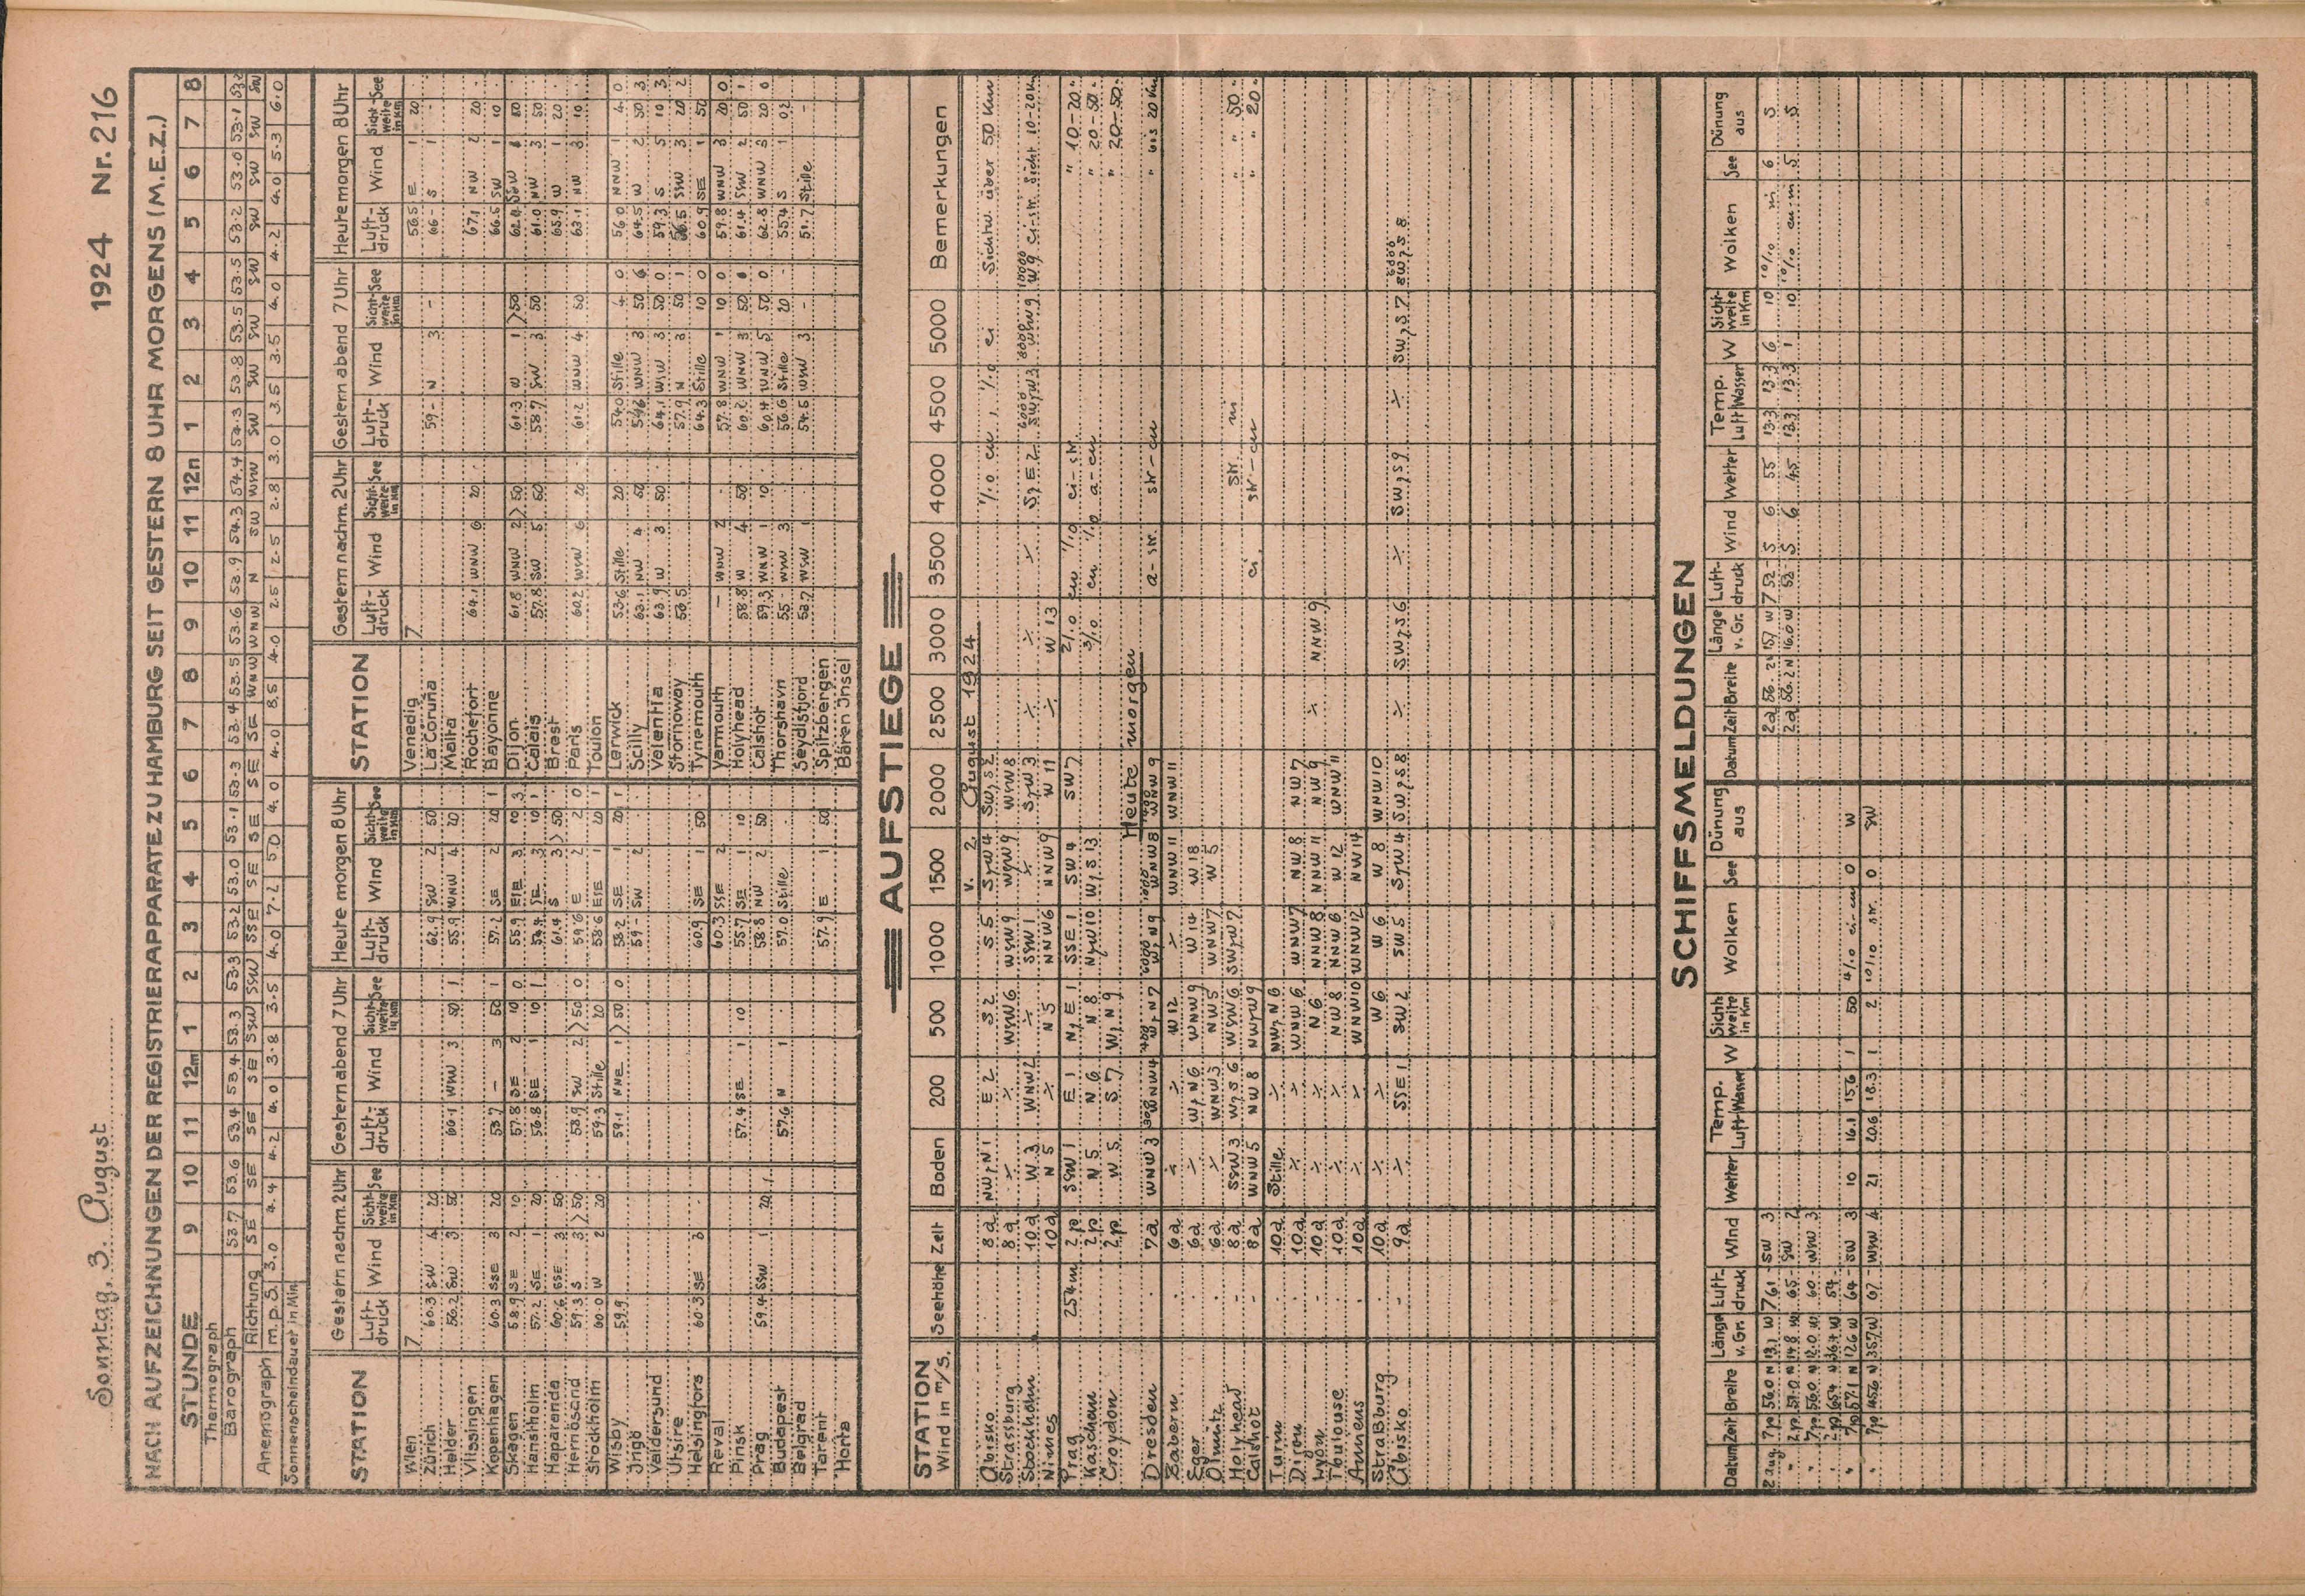 Sonntag, 3. August 1924 Nr. 216
NACH AUFZEICHNUNGEN DER REGISTRIERAPPARATE ZU HAMBURG SEIT GESTERN 8 UHR MORGENS (M.E.Z.)
STUNDE 9 10 11 12m 1 2 3 4 5 6 7 8 9 10 11 12n 1 2 3 4 5 6 7 8
Thermograph
Barograph 53.7 53.6 53.4 53.4 53.3 53.3 53.2 53.0 53.1 53.3 53.4 53.5 53.6 53.9 54.3 54.4 54.3 53.8 53.5 53.5 53.2 53.0 53.1
Anemograph Richtung SE SE SE SE SSW SSW SSE SE SE SE SE WNW WNW N SW WNW SW SW SW SW SW SW SW SW
m.p.S. 3.0 4.4 4.2 4.0 3.8 3.5 4.0 7.2 5.0 4.0 4.0 8.5 4.0 2.5 2.5 2.8 3.0 3.5 3.5 4.0 4.2 4.0 5.3 6.0
Sonnenscheindauer in Min.
STATION Gestern nachm. 2 Uhr Gestern abend 7 Uhr Heute morgen 8 Uhr STATION Gestern nachm. 2 Uhr Gestern abend 7 Uhr Heute morgen 8 Uhr
Luft-druck Wind Sicht-weite in Km See Luft-druck Wind Sicht-weite in Km See Luft-druck Wind Sicht-weite in Km See Luft-druck Wind Sicht-weite in Km See Luft-druck Wind Sicht-weite in Km See Luft-druck Wind Sicht-weite in Km See
Wien 7 Venedig 7 56.5 E 1 20
Zürich 60.3 SW 4 20 62.9 SW 2 50 La Coruña 59- N 3 - 66- S 1 -
Helder 56.2 SW 3 50 60.1 WNW 3 50 1 55.9 WNW 4 20 Malta
Vlissingen Rochefort 64.1 WNW 6 20 67.1 NW 2 20
Kopenhagen 60.3 SSE 3 20 53.7 - 3 50 1 57.2 SE 2 20 1 Bayonne 66.5 SW 1 10
Skagen 58.9 SE 2 10 57.8 SE 2 10 0 55.9 3 10 3 Dijon 61.8 WNW 2 >50 61.3 W 1 >50
Hanstholm 57.2 SE 1 20 56.8 SE 1 10 1 SE 3 10 1 Calais 57.8 SW 5 50 58.7 SW 3 50 61.0 NW 3 50
Haparanda 60.6 SSE 3 50 61.4 S 3 >50 Brest 65.9 W 1 20
Hernösand 59.3 S 3 >50 58.9 SW 2 >50 0 59.6 E 2 2 0 Paris 60.2 WNW 6 20 61.2 WNW 4 50 63.1 NW 3 10
Stockholm 60.0 W 2 20 59.3 Stille 20 58.6 ESE 1 20 1 Toulon
Wisby 59.9 59.1 NNE 1 >50 0 58.2 SE 1 20 1 Lerwick 53.6 Stille 20 54.0 Stille 4 0 56.0 NNW 1 4 0
Jnigö 59- SW 2 Scilly 63.1 NW 4 50 WNW 3 50 64.5 W 2 50 3
Valdersund Valentia 63.9 W 3 50 64.1 3 50 0 59.3 S 5 10 3
Utsire Stornoway 56.5 57.9 N 3 50 1 SSW 3 20 2
Helsingfors 60.3 SE 3 60.9 SE 1 50 Tynemouth 64.3 Stille 10 0 60.9 SE 1 50
Reval 60.3 SSE 2 Yarmouth - WNW 2 57.8 WNW 1 10 0 59.8 WNW 3 20 0
Pinsk 57.4 SE 1 10 55.7 SE 1 10 Holyhead 58.8 W 4 50 60.2 WNW 3 50 61.4 SSW 2 50 1
Prag 59.4 SSW 1 20 1 58.8 NW 2 50 Calshot 59.3 WNW 1 10 60.4 WNW 5 50 0 62.8 WNW 3 20 0
Budapest 57.6 N 1 57.0 Stille Thorshavn 55- WNW 3 56.6 Stille 20 55.4 S 1 02
Belgrad Seydisfjord 53.7 WSW 1 54.5 WSW 3 - 51.7 Stille -
Tarent 57.9 E 1 50 Spitzbergen
Horta Bären Jnsel
AUFSTIEGE
STATION Wind in m/s. Seehöhe Zeit Boden 200 500 1000 1500 2000 2500 3000 3500 4000 4500 5000 Bemerkungen
v. 2. August 1924
Abisko 8a NW,N 1 E 2 S 2 S 5 S,W 4 SW,S 2 1/10 cu 1/10 ci Sichtw. über 50 Km
Strassburg 8a ÷ ÷ WSW 6 WSW 9 W,W 9 WNW 8
Stockholm 10a W 3 WNW 2 ÷ SSW 1 ÷ S,W 3 ÷ ÷ ÷ S,E 2 6000 SW,W 3 8000 WNW 9 10000 W 9 Ci-str. Sicht 10-20 Km
Nimes 10a N 5 ÷ N 5 NNW 6 NNW 9 W 11 ÷ W 13
Prag 254m 2p SSW 1 E 1 N,E 1 SSE 1 SW 4 SW 7 2/10 cu 1/10 ci-str. " 10-20 "
Kaschau 2p N 5 N 6 N 8 N,W 10 W,S 13 3/10 cu 1/10 a-cu " 20-50 "
Croydon 2p W 5 S 7 W,N 9 " 20-50 "
Heute morgen
Dresden 7a WNW 3 300 WNW 4 400 W,N 7 6000 W,N 9 WNW 8 WNW 9 a-str. str-cu " bis 20 Km
Babern 6a ÷ ÷ W 12 ÷ WNW 11 WNW 11
Eger 6a ÷ W,N 6 WNW 9 W 14 W 18
Olmütz 6a ÷ WNW 3 NW 5 WNW 7 W 5
Holyhead - 8a SSW 3 W,S 6 WSW 6 SW,W 7 str. ni " " 50 "
Calshot - 8a WNW 5 NW 8 NW,W 9 ci. str-cu " " 20 "
Turin 10a Stille ÷ NW,N 6
Dijon 10a ÷ ÷ WNW 6 WNW 7 NW 8 NW 7
Lyon 10a ÷ ÷ N 6 NNW 8 NNW 11 NW 9 ÷ NNW 9
Toulouse 10a ÷ ÷ NW 8 NNW 6 W 12 WNW 11
Amiens 10a ÷ ÷ WNW 10 WNW 12 NW 14
Straßburg 10a ÷ ÷ W 6 W 6 W 8 WNW 10
Abisko 9a ÷ SSE 1 SW 2 SW 5 S,W 4 SW,S 8 ÷ SW,S 6 ÷ SW,S 9 ÷ SW,S 7 6000 SW,S 8
SCHIFFSMELDUNGEN
Datum Zeit Breite Länge v. Gr. Luft-druck Wind Wetter Temp. Luft Wasser W Sicht-weite in Km Wolken See Dünung aus Datum Zeit Breite Länge v. Gr. Luft-druck Wind Wetter Temp. Luft Wasser W Sicht-weite in Km Wolken See Dünung aus
2 Aug 7p 56.0 N 13.1 W 761- SW 3 2a 56.2 N 15.7 W 752- S 6 55 13.3 13.3 6 10 10/10 ni 6 S
" 2p 57.0 N 14.8 W 65- SW 2 2a 56.2 N 16.0 W 52- S 6 45 13.3 13.3 1 10 10/10 cu ni 5 S
" 7p 56.0 N 12.0 W 60- WNW 3
2p 54-
" 7p 57.1 N 12.6 W 64- SW 3 10 16.1 15.6 1 50 4/10 ci-cu 0 W
" 7p 45.6 N 35.7 W 67- WSW 4 21 20.6 18.3 1 2 10/10 str. 0 SW